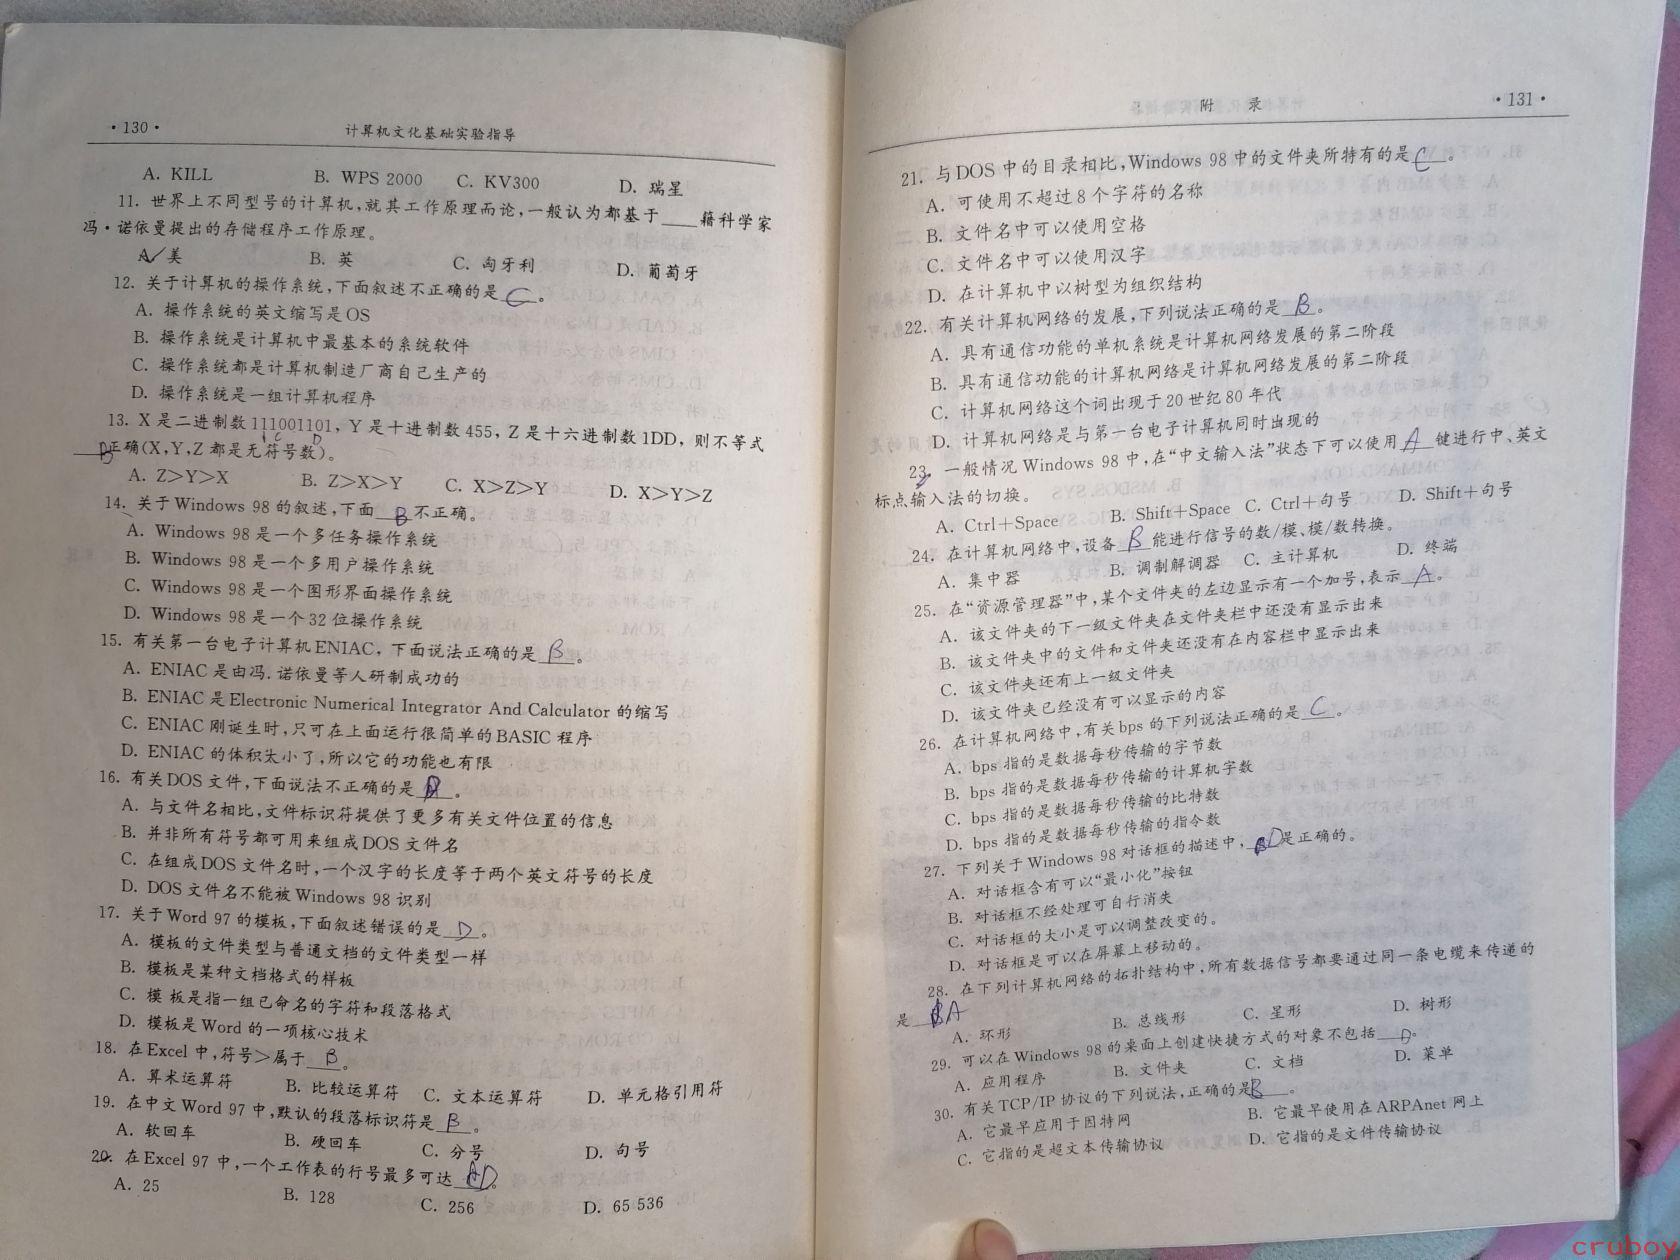 ·130·
计算机文化基础实验指导
A. KILL B. WPS 2000 C. KV300 D. 瑞星
11. 世界上不同型号的计算机,就其工作原理而论,一般认为都基于____籍科学家
冯·诺依曼提出的存储程序工作原理。
A.✓美 B. 英 C. 匈牙利 D. 葡萄牙
12. 关于计算机的操作系统,下面叙述不正确的是 C 。
A. 操作系统的英文缩写是OS
B. 操作系统是计算机中最基本的系统软件
C. 操作系统都是计算机制造厂商自己生产的
D. 操作系统是一组计算机程序
13. X 是二进制数111001101, Y 是十进制数455, Z 是十六进制数1DD, 则不等式
B 正确(X,Y,Z 都是无符号数)。
1 C D
A. Z>Y>X B. Z>X>Y C. X>Z>Y D. X>Y>Z
14. 关于Windows 98 的叙述,下面 B 不正确。
A. Windows 98 是一个多任务操作系统
B. Windows 98 是一个多用户操作系统
C. Windows 98 是一个图形界面操作系统
D. Windows 98 是一个32 位操作系统
15. 有关第一台电子计算机ENIAC, 下面说法正确的是 B 。
A. ENIAC 是由冯. 诺依曼等人研制成功的
B. ENIAC 是Electronic Numerical Integrator And Calculator 的缩写
C. ENIAC 刚诞生时,只可在上面运行很简单的BASIC 程序
D. ENIAC 的体积太小了,所以它的功能也有限
16. 有关DOS 文件,下面说法不正确的是 D 。
A. 与文件名相比,文件标识符提供了更多有关文件位置的信息
B. 并非所有符号都可用来组成DOS 文件名
C. 在组成DOS 文件名时,一个汉字的长度等于两个英文符号的长度
D. DOS 文件名不能被Windows 98 识别
17. 关于Word 97 的模板,下面叙述错误的是 D 。
A. 模板的文件类型与普通文档的文件类型一样
B. 模板是某种文档格式的样板
C. 模 板是指一组已命名的字符和段落格式
D. 模板是Word 的一项核心技术
18. 在Excel 中,符号>属于 B 。
A. 算术运算符 B. 比较运算符 C. 文本运算符 D. 单元格引用符
19. 在中文Word 97 中,默认的段落标识符是 B 。
A. 软回车 B. 硬回车 C. 分号 D. 句号
20. 在Excel 97 中,一个工作表的行号最多可达 AD。
A. 25 B. 128 C. 256 D. 65 536
附 录
·131·
21. 与DOS 中的目录相比,Windows 98 中的文件夹所特有的是 C 。
A. 可使用不超过8 个字符的名称
B. 文件名中可以使用空格
C. 文件名中可以使用汉字
D. 在计算机中以树型为组织结构
22. 有关计算机网络的发展,下列说法正确的是 B 。
A. 具有通信功能的单机系统是计算机网络发展的第二阶段
B. 具有通信功能的计算机网络是计算机网络发展的第二阶段
C. 计算机网络这个词出现于20 世纪80 年代
D. 计算机网络是与第一台电子计算机同时出现的
23. 一般情况 Windows 98 中,在“中文输入法”状态下可以使用 A 键进行中、英文
标点输入法的切换。
A. Ctrl+Space B. Shift+Space C. Ctrl+句号 D. Shift+句号
24. 在计算机网络中,设备 B 能进行信号的数/模、模/数转换。
A. 集中器 B. 调制解调器 C. 主计算机 D. 终端
25. 在“资源管理器”中,某个文件夹的左边显示有一个加号,表示 A 。
A. 该文件夹的下一级文件夹在文件夹栏中还没有显示出来
B. 该文件夹中的文件和文件夹还没有在内容栏中显示出来
C. 该文件夹还有上一级文件夹
D. 该文件夹已经没有可以显示的内容
26. 在计算机网络中,有关bps 的下列说法正确的是 C 。
A. bps 指的是数据每秒传输的字节数
B. bps 指的是数据每秒传输的计算机字数
C. bps 指的是数据每秒传输的比特数
D. bps 指的是数据每秒传输的指令数
27. 下列关于Windows 98 对话框的描述中, D 是正确的。
A. 对话框含有可以“最小化”按钮
B. 对话框不经处理可自行消失
C. 对话框的大小是可以调整改变的。
D. 对话框是可以在屏幕上移动的。
28. 在下列计算机网络的拓扑结构中,所有数据信号都要通过同一条电缆来传递的
是 BA
A. 环形 B. 总线形 C. 星形 D. 树形
29. 可以在Windows 98 的桌面上创建快捷方式的对象不包括 D 。
A. 应用程序 B. 文件夹 C. 文档 D. 菜单
30. 有关TCP/IP 协议的下列说法,正确的是B 。
A. 它最早应用于因特网 B. 它最早使用在ARPAnet 网上
C. 它指的是超文本传输协议 D. 它指的是文件传输协议
cruboy